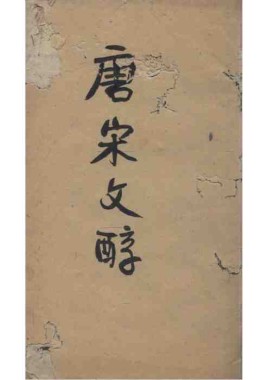 唐宋文醇